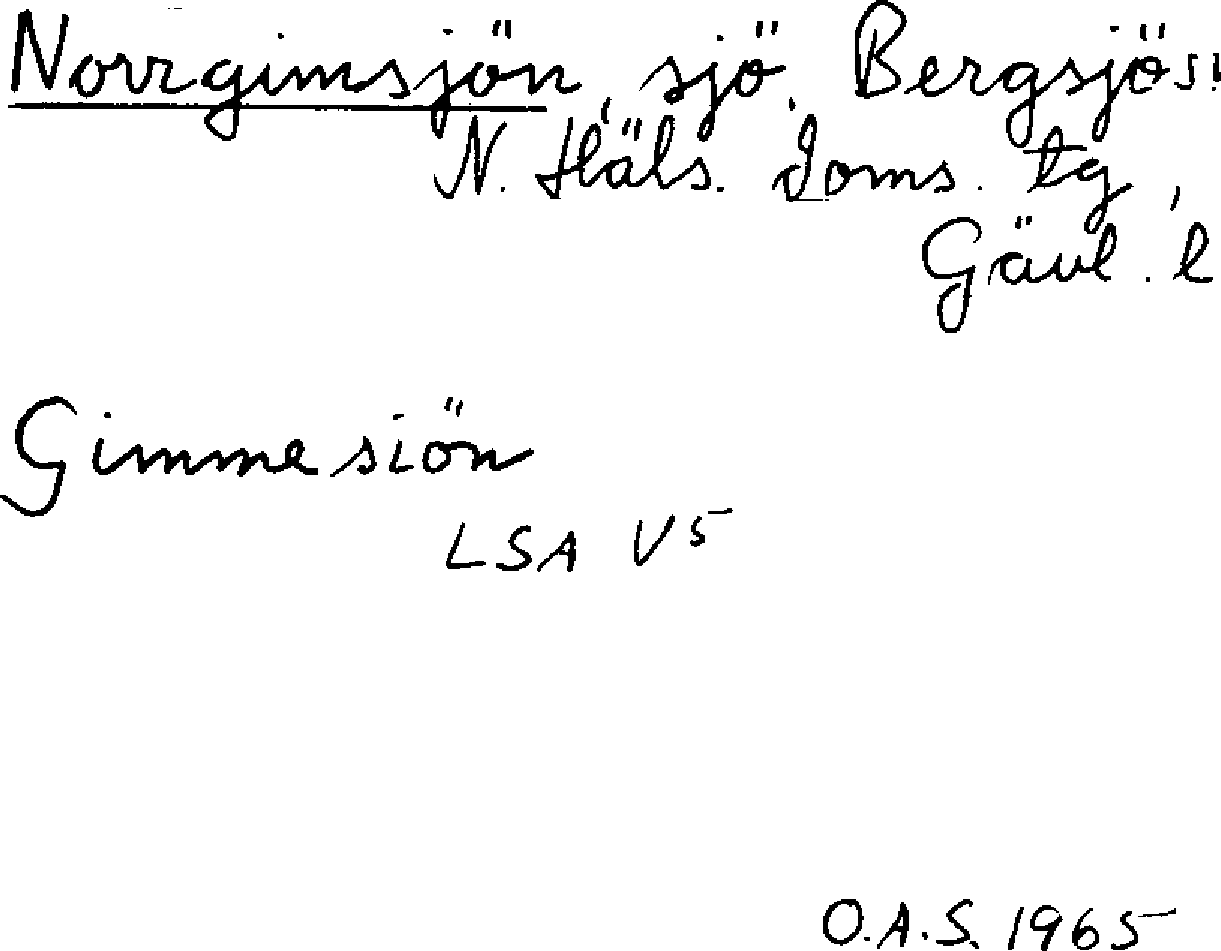 Norrgimsjön, sjö. Bergsjö s:n
N. Häls. Doms. tg,
Gävl. l
Gimmesiön
LSA V5
O.A.S. 1965